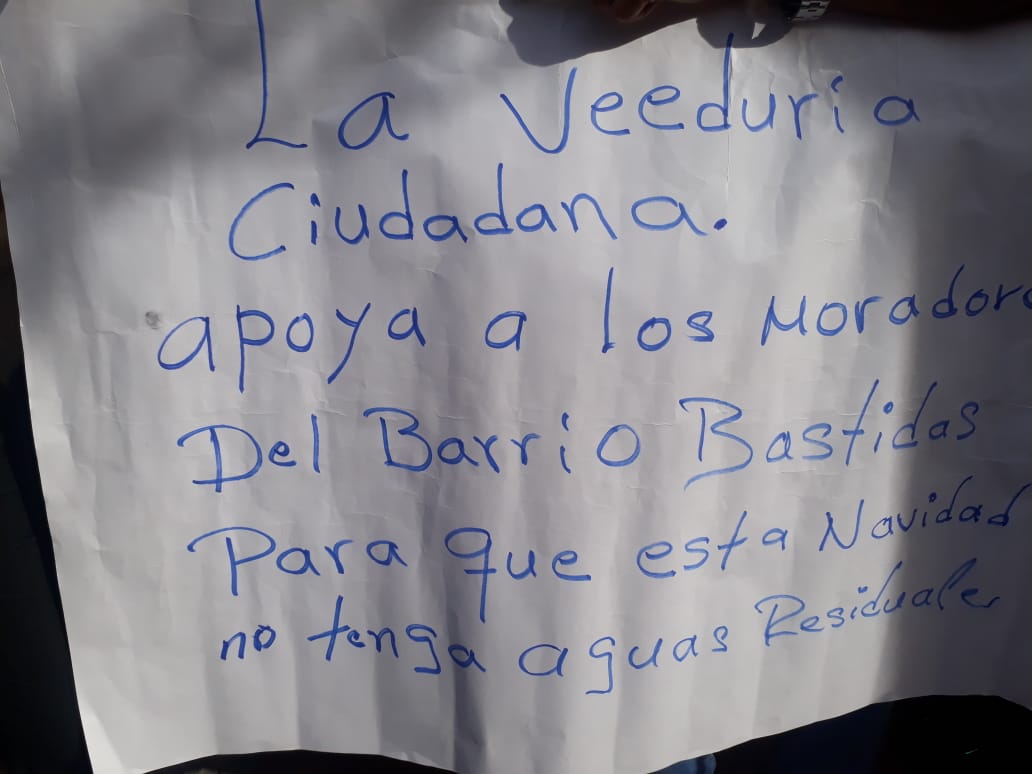 La Veeduria
Ciudadana.
apoya a los Moradore
Del Barrio Bastidas
Para que esta Navidad
no tenga aguas Residuales